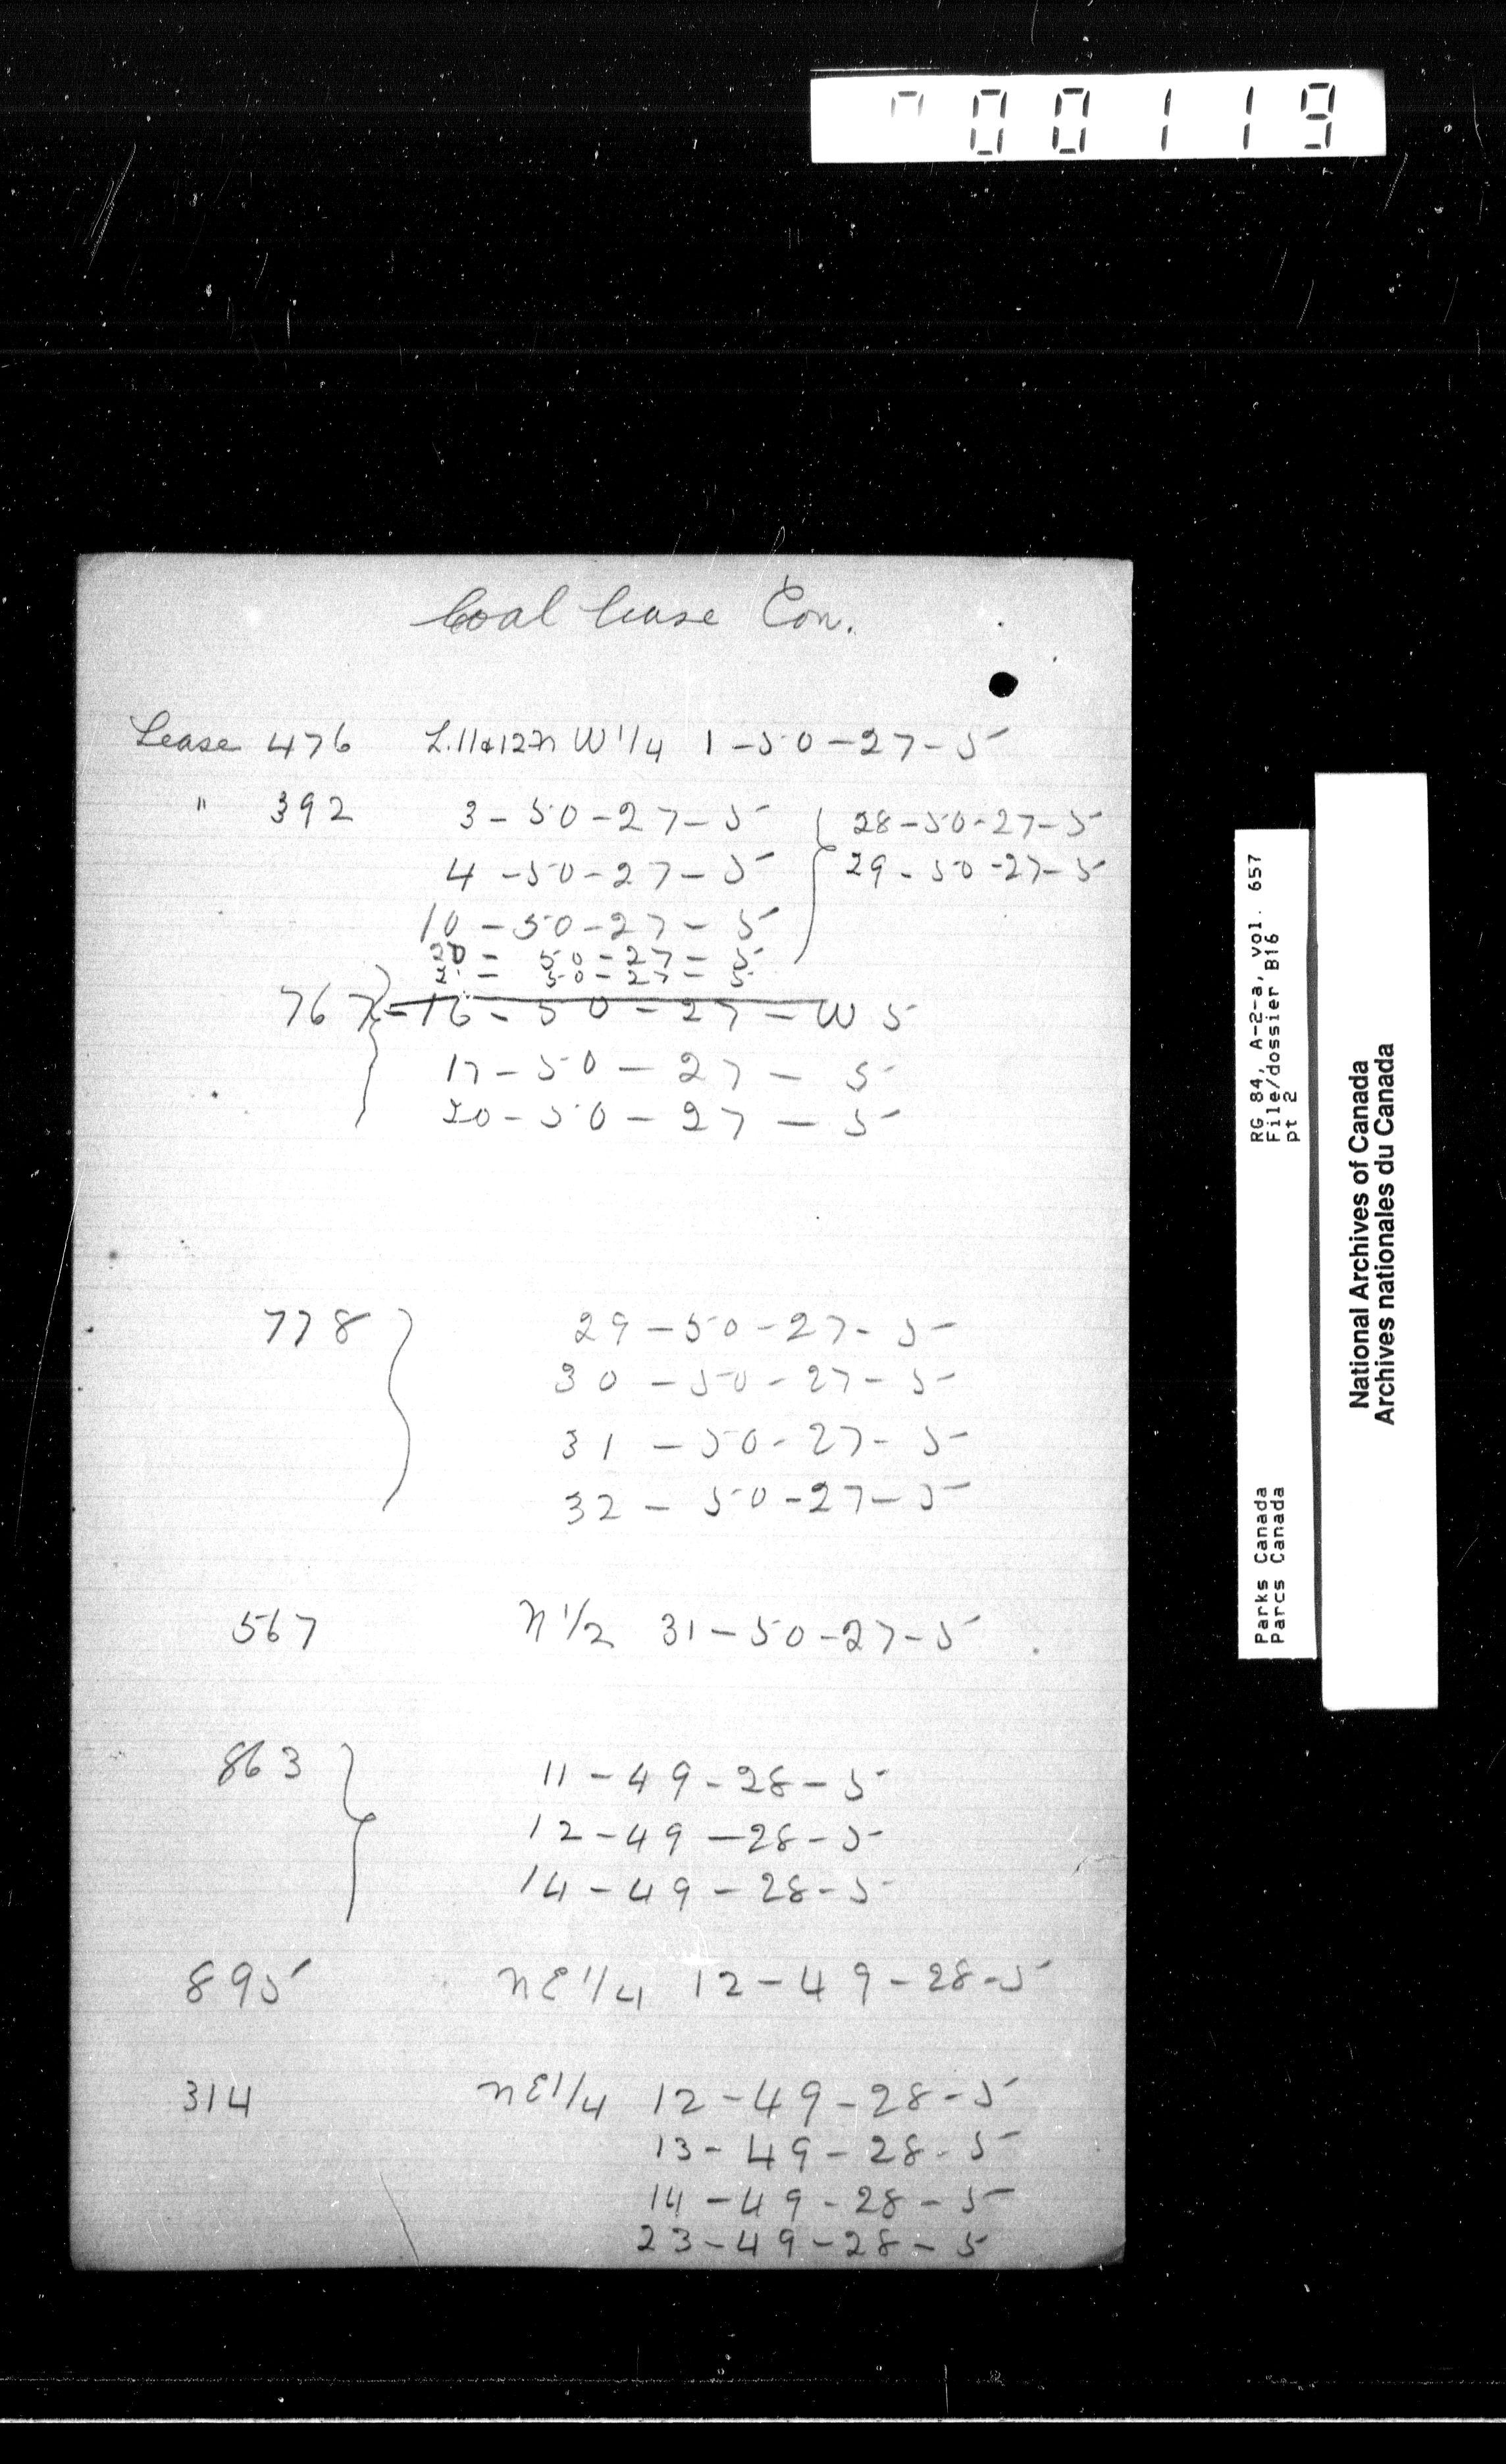 00119
Coal Lease Con.
Lease 476 L.11&12 N W 1/4 1-50-27-5
" 392 3-50-27-5 28-50-27-5
4-50-27-5 29-50-27-5
10-50-27-5
20-50-27-5
50-27-5
767 16-50-27-W 5
17-50-27-5
20-50-27-5
778 29-50-27-5
30-50-27-5
31-50-27-5
32-50-27-5
567 N 1/2 31-50-27-5
863 11-49-28-5
12-49-28-5
14-49-28-5
895 N E 1/4 12-49-28-5
314 N E 1/4 12-49-28-5
13-49-28-5
14-49-28-5
23-49-28-5
Parks Canada RG 84, A-2-a, vol. 657
Parcs Canada File/dossier B16
pt 2
National Archives of Canada
Archives nationales du Canada